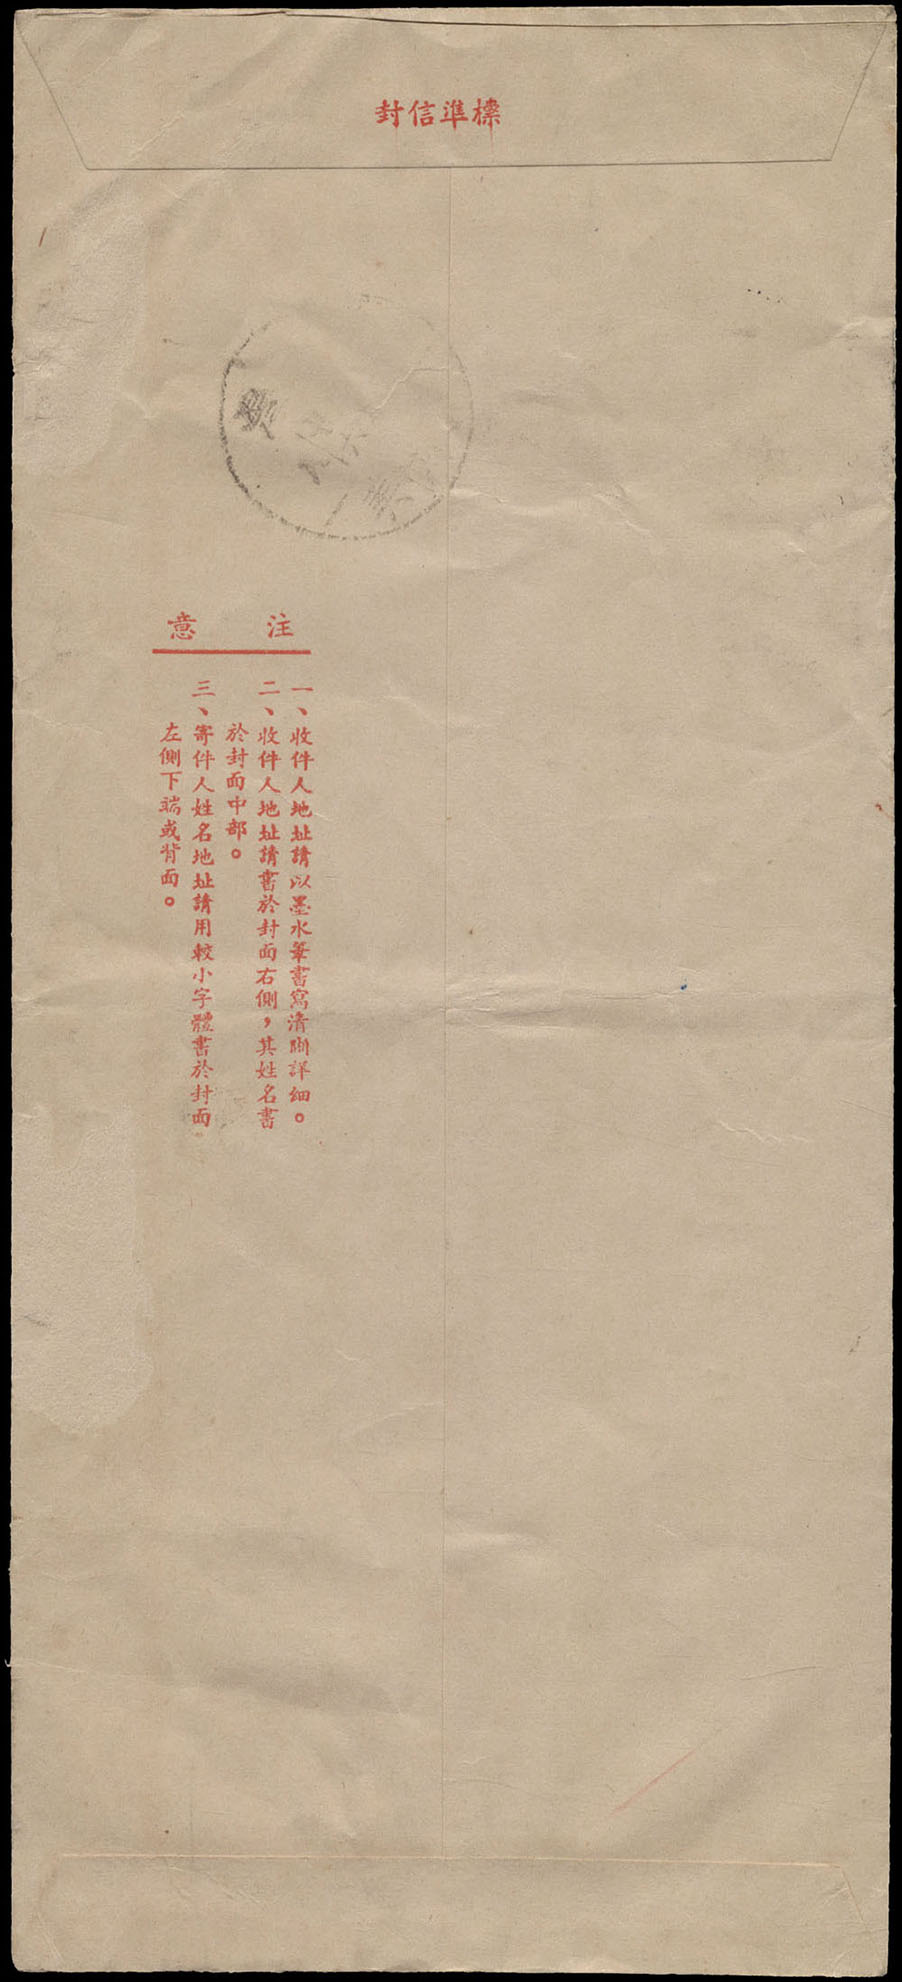 標準信封
注意
一、收件人地址請以墨水筆書寫清晰詳細。
二、收件人地址請書於封面右側，其姓名書
於封面中部。
三、寄件人姓名地址請用較小字體書於封面
左側下端或背面。